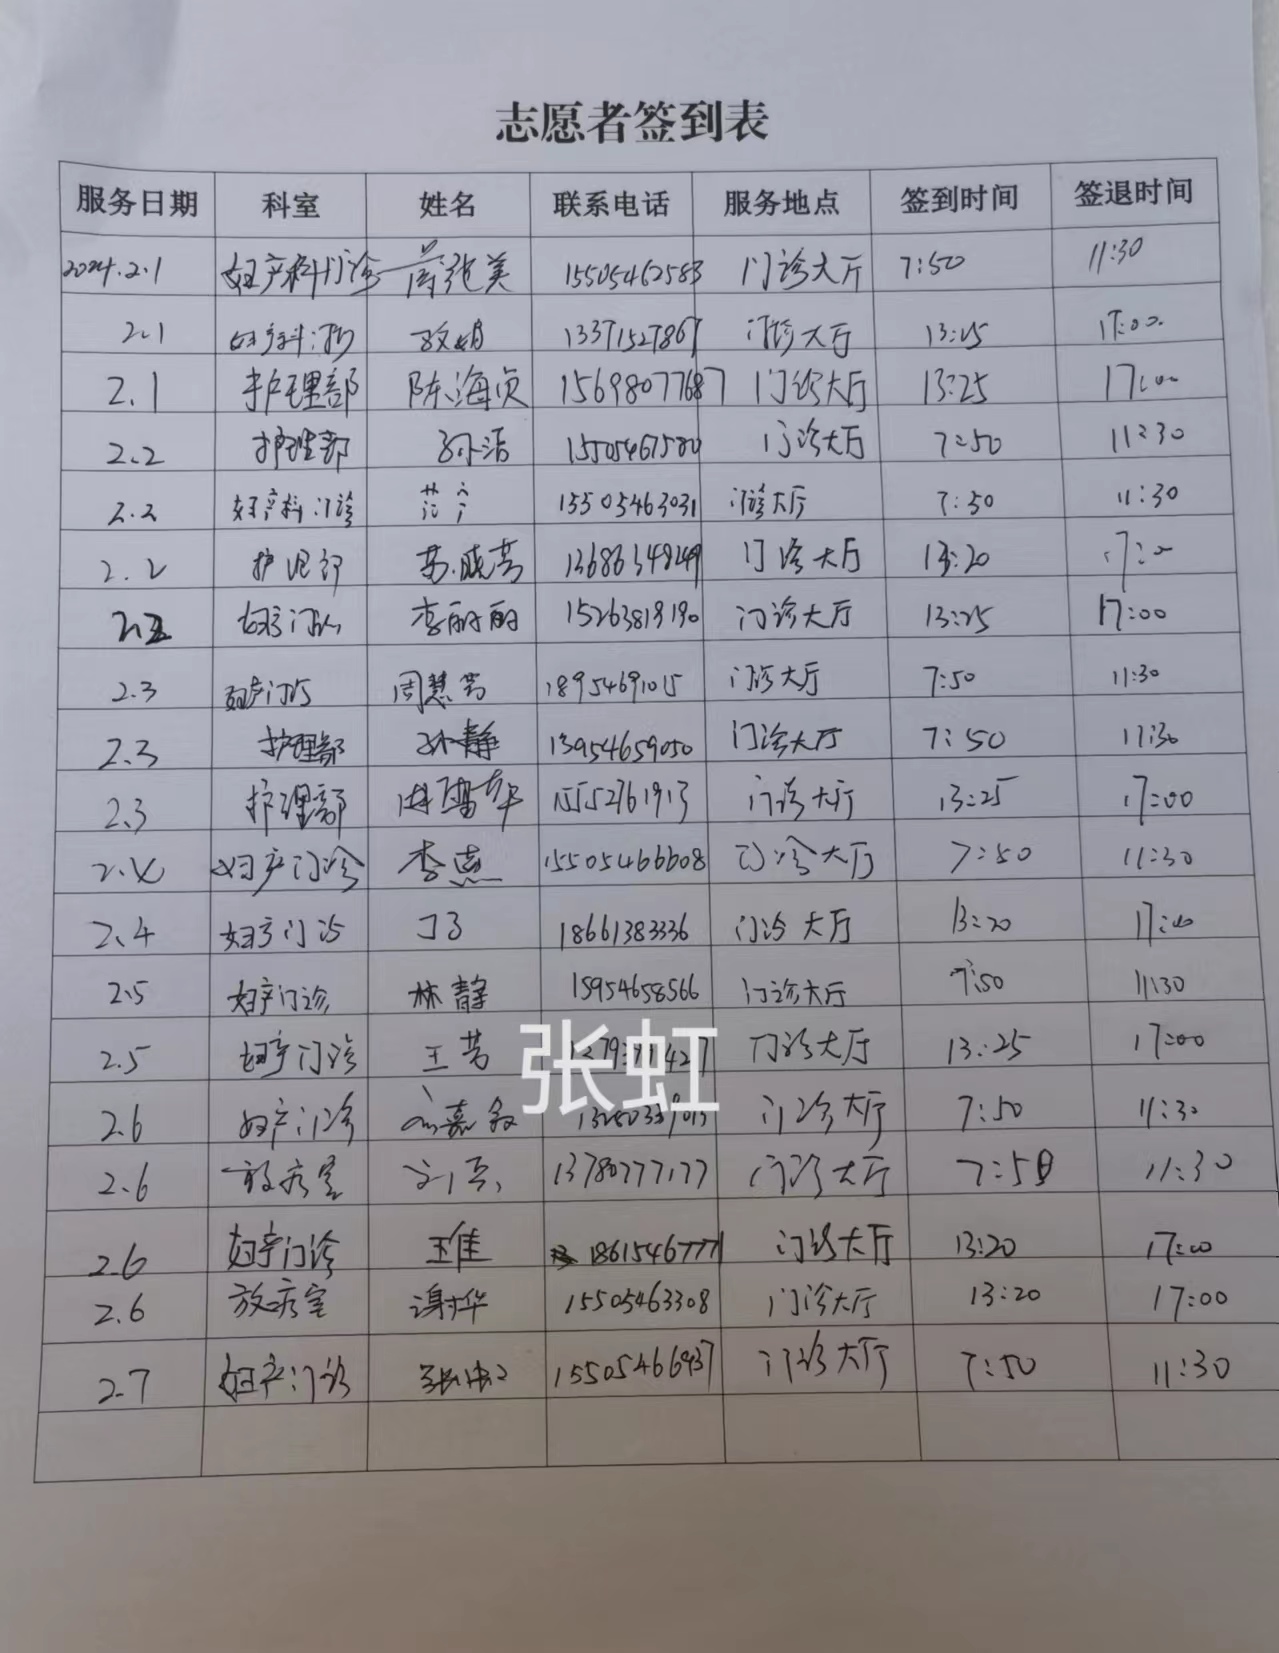 志愿者签到表
服务日期 科室 姓名 联系电话 服务地点 签到时间 签退时间
2024.2.1 妇产科门诊 美 15505462583 门诊大厅 7:50 11:30
2.1 13371527867 门诊大厅 13:25 17:00
2.1 护理部 陈海贞 15698077687 门诊大厅 13:25 17:00
2.2 护理部 孙洁 15505467580 门诊大厅 7:50 11:30
2.2 妇产科门诊 15505463031 门诊大厅 7:50 11:30
2.2 护理部 苏晓芳 13686348249 门诊大厅 13:20 17:00
2.2 妇产门诊 李丽丽 15263819190 门诊大厅 13:25 17:00
2.3 妇产门诊 周慧芳 18954691015 门诊大厅 7:50 11:30
2.3 护理部 孙静 13954659050 门诊大厅 7:50 11:30
2.3 护理部 15552761913 门诊大厅 13:25 17:00
2.4 妇产门诊 李燕 15505466608 门诊大厅 7:50 11:30
2.4 妇产门诊 18661383336 门诊大厅 13:20 17:00
2.5 妇产门诊 林静 15954658566 门诊大厅 7:50 11:30
2.5 妇产门诊 王芳 门诊大厅 13:25 17:00
张虹
2.6 妇产门诊 门诊大厅 7:50 11:30
2.6 放疗室 13780777177 门诊大厅 7:50 11:30
2.6 妇产门诊 王维 18615467771 门诊大厅 13:20 17:00
2.6 放疗室 谢华 15505463308 门诊大厅 13:20 17:00
2.7 妇产门诊 张虹 15505466937 门诊大厅 7:50 11:30